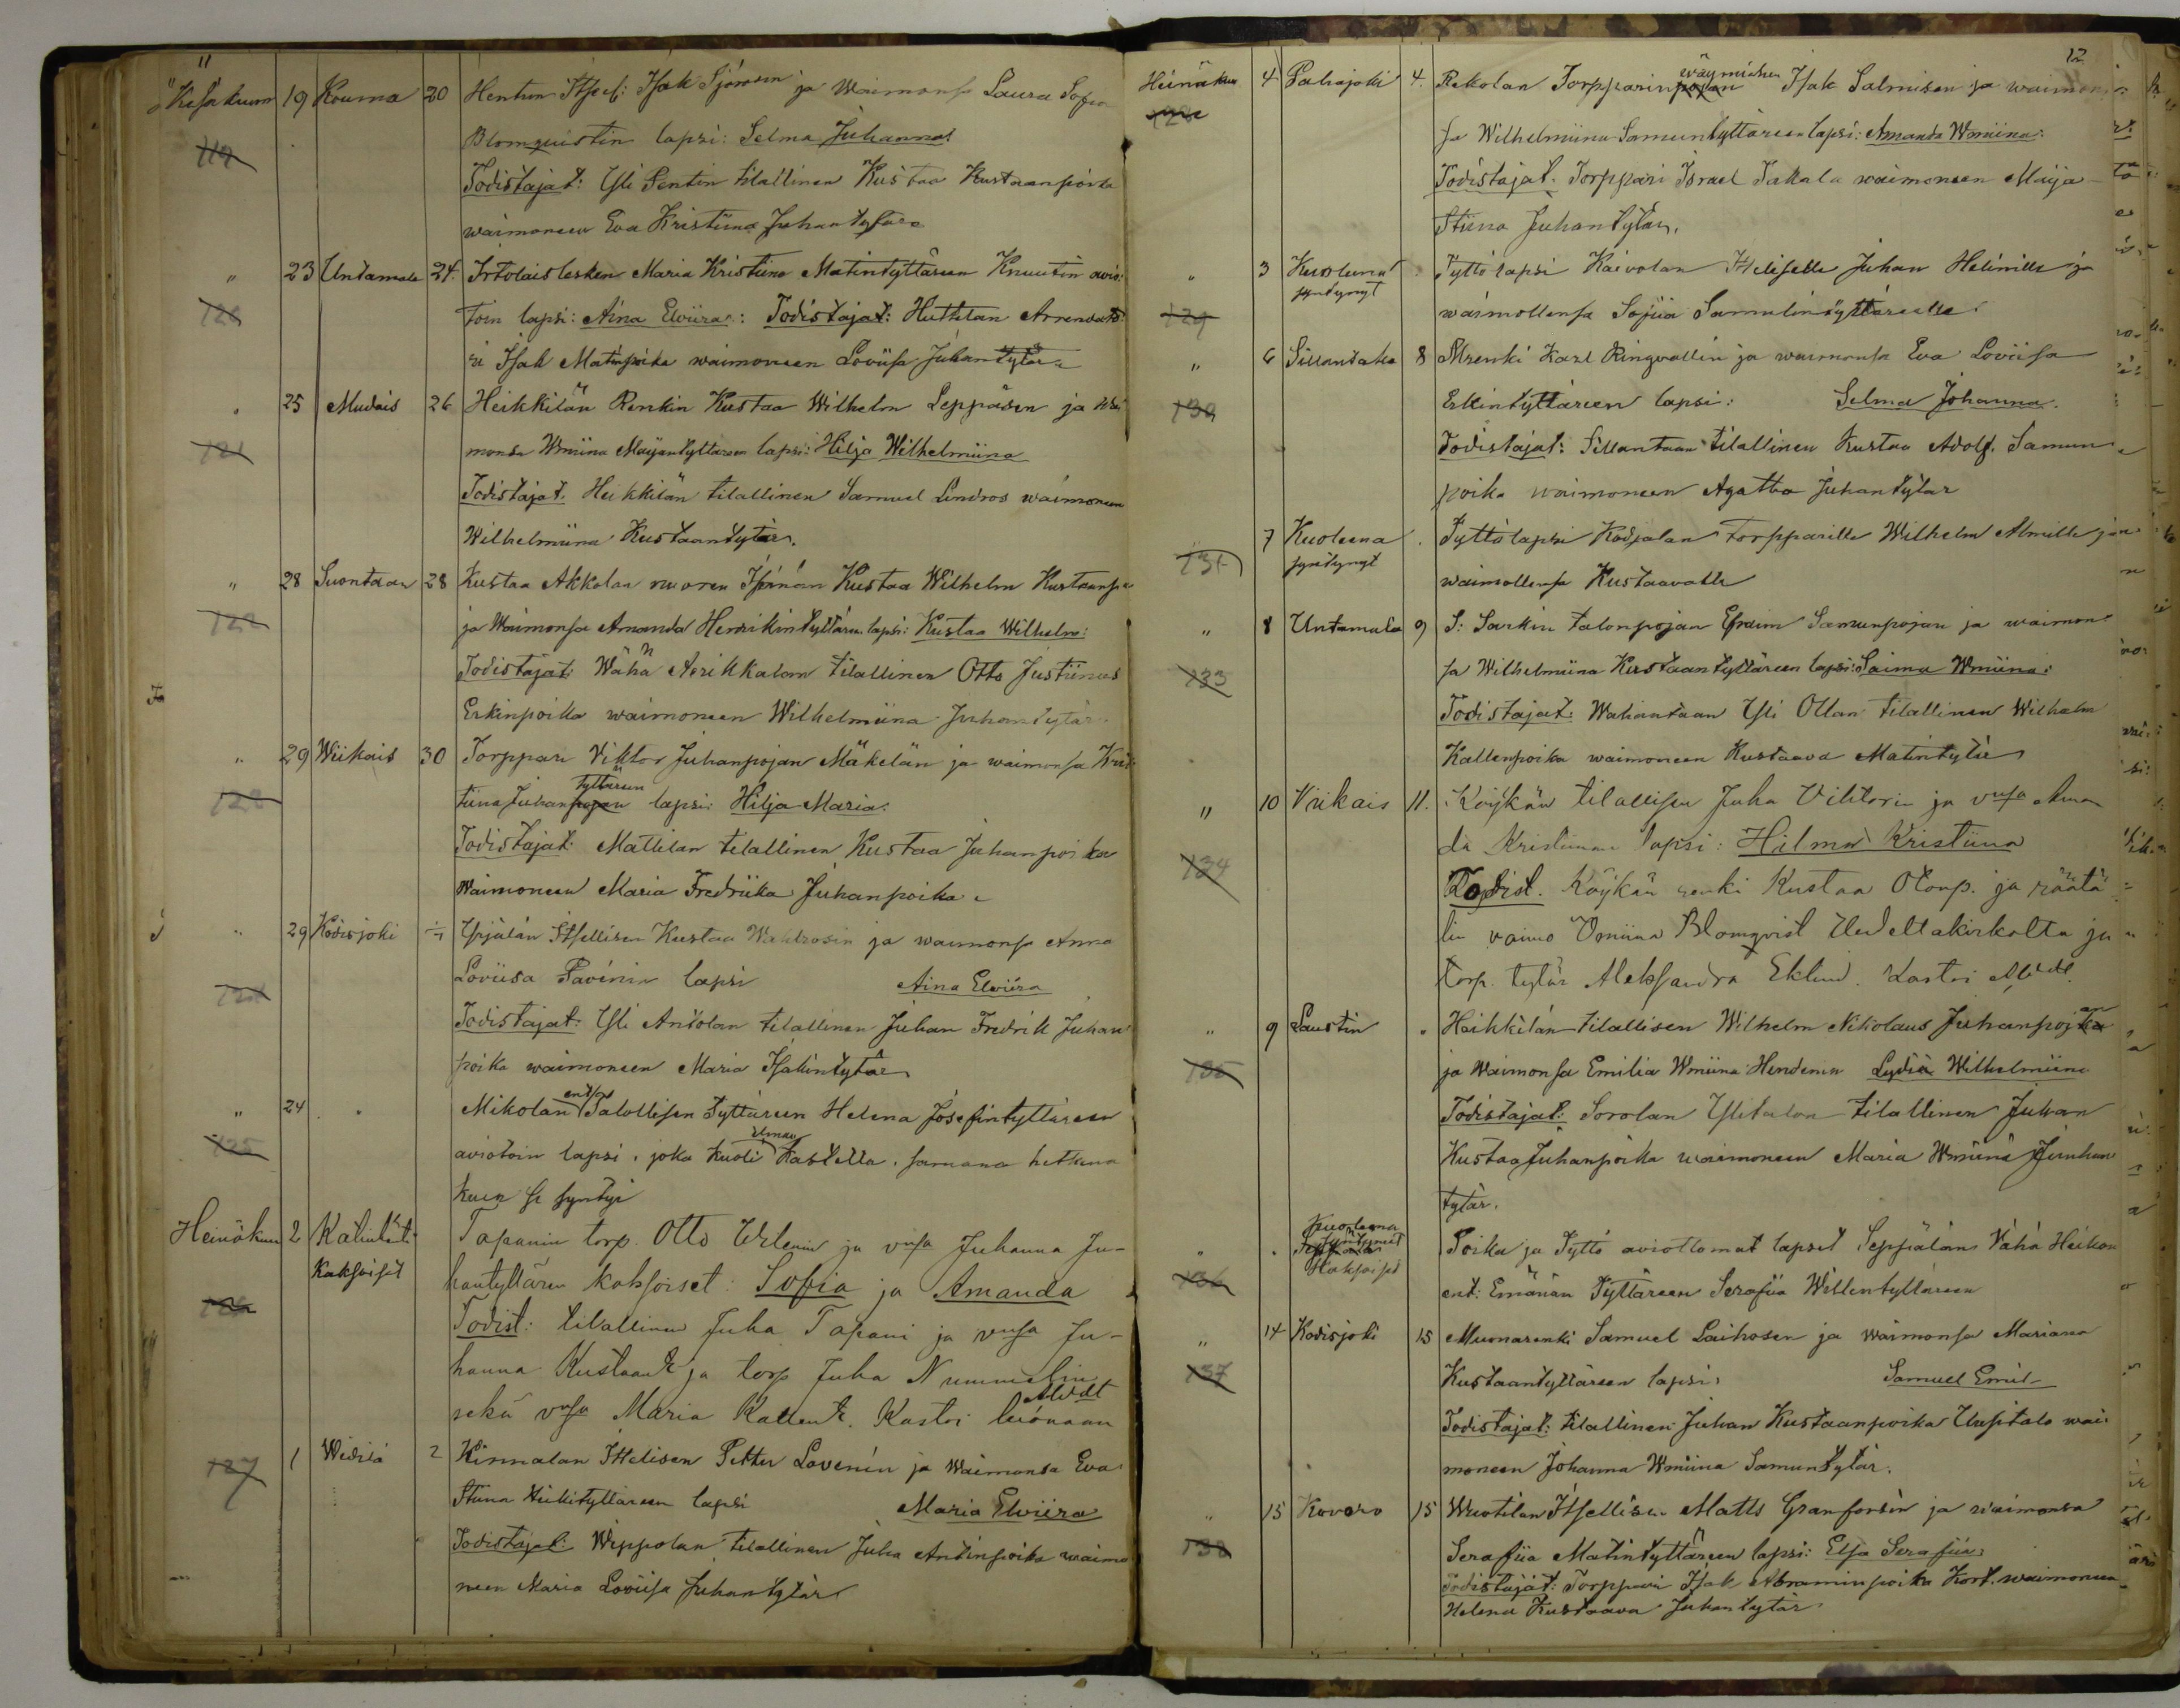 11
Kesäkuun 19 Kouma 20 Hentun Itsel: Isak Sjörosen ja Waimonsa Laura Sofia
119 Blomquistin lapsi: Selma Juhanna:
Todistajat: Yli Pentin tilallinen Kustaa Kustaanpoika
waimoneen Eva Kristiina Juhantytär
" 23 Untamala 24. Irtolaislesken Maria Kristiina Matintyttären Knuutin avio:
120 toin lapsi: Aina Elviira: Todistajat: Huttilan Arrendato:
ri Isak Matinpoika waimoneen Loviisa Juhantytär
" 25 Mudais 26 Heikkilän Renkin Kustaa Wilhelm Leppäsen ja Wai
121 monsa Wmiina Maijantyttären lapsi: Hilja Wilhelmiina
Todistajat. Heikkilän tilallinen Samuel Lindros waimoneen
Wilhelmiina Kustaantytär.
" 28 Suontaan 28 Kustaa Akkolan nuoren Isännän Kustaa Wilhelm Kustaanp
122 ja Waimonsa Amanda Henrikintyttären lapsi: Kustaa Wilhelm:
Todistajat: Wähä Arikkalan tilallinen Otto Justiinus
Erkinpoika waimoneen Wilhelmiina Juhantytär
" 29 Wiikais 30 Torppari Viktor Juhanpojan Mäkelän ja waimonsa Kris
123 tiina Juhanpojan tyttären lapsi: Hilja Maria:
Todistajat: Mattilan tilallinen Kustaa Juhanpoika
Waimoneen Maria Fredriika Juhanpoika
" 29 Kodisjoki Yrjälän Itsellisen Kustaa Wahlrosin ja waimonsa Anna
124 Loviisa Pavinin lapsi Aina Elviira
Todistajat: Yli Antolan tilallinen Juhan Fredrik Juhan
poika waimoneen Maria Isakintytär
" 24 " Mikolan ent. Talollisen Tyttären Helena Josefintyttären
125 aviotoin lapsi, joka kuoli ilman kastetta. samana hetkenä
kuin se syntyi
Heinäkuu 2 Katinhänta Tapanin torp. Otto Urlenin ja vmsa Juhanna Ju-
Kaksoiset hantyttären kaksoiset: Sofia ja Amanda
126 Todist: tilallinen Juha Tapani ja vmsa Ju-
hanna Kustaant. ja torp Juha Nummelin
sekä vmsa Maria Kallent. Kastoi Alvdt
127 1 Widilä 2 Kinnalan Itselisen Petter Lovenin ja Waimonsa Eva
Stiina Heikityttären lapsi Maria Elviira
Todistajat: Wippolan tilallinen Juha Antinpoika waimo
neen Maria Loviisa Juhantytär
12
Heinäkuu 4 Lahajoki 4. Rekolan Torpparin pojan wäymiehen Isak Salmisen ja waimon
128 sa Wilhelmiina Samuntyttären lapsi: Amanda Wmiina:
Todistajat: Torppari Israel Takala waimoneen Maija
Stiina Juhantytär.
" 3 Kuolunut syntynyt Tyttö lapsi Kaivolan Itseliselle Juhan Helinille ja
129 waimollensa Sofiia Samulintyttärelle
" 6 Sillantaka 8 Mrenki Karl Ringvallin ja waimonsa Eva Loviisa
130 Erkintyttären lapsi: Selma Johanna.
Todistajat: Sillantaan tilallinen Kustaa Adolf. Samun
poika waimoneen Agatha Juhantytär
7 Kuoleena syntynyt Tyttölapsi Kodjalan Torpparille Wilhelm Almille ja
131 waimollensa Kustaavalle
" 8 Untamala 9 S: Sarkin talonpojan Efraim Samunpojan ja waimon
133 sa Wilhelmiina Kustaantyttären lapsi: Saima Wmiina:
Todistajat: Wahantaan Yli Ollan tilallinen Wilhelm
Kallenpoika waimoneen Kustaava Matintytär
" 10 Viikais 11. Köykän tilallisen Juha Vihtorin ja vmsa Aman
134 da Kristiinan lapsi: Hilma Kristiina
Todist. Köykän renki Kustaa Otonp. ja räätä
lin vaimo Vmiina Blomqvist Uudeltakirkolta ja
torp. tytär Aleksandra Eklund. Kastoi Alvdt.
" 9 Laustin " Heikkilän tilallisen Wilhelm Nikolaus Juhanpojan
135 ja Waimonsa Emilia Wmiina Hendenin Lydia Wilhelmiina
Todistajat: Sorolan Ylitalon tilallinen Juhan
Kustaa Juhanpoika waimoneen Maria Wmiina Juuhan
tytär.
" " Kuolleena syntyneet Kaksoiset Poika ja Tyttö aviottomat lapset Seppälän Vähä Heikon
136 ent: Emännän Tyttären Serafiia Willentyttären
" 14 Kodisjoki 15 Muonarenki Samuel Laihosen ja Waimonsa Mariana
137 Kustaantyttären lapsi: Samuel Emil
Todistajat: tilallinen Juhan Kustaanpoika Uusitalo wai
moneen Johanna Wmiina Samuntytär.
" 15 Kovero 15 Wuotilan Itsellisen Matts Granforsin ja waimonsa
138 Serafiia Matintyttären lapsi: Elsa Serafiia:
Todistajat: Torppari Isak Abraminpoika Kort. waimoneen
Helena Kustaava Juhantytär